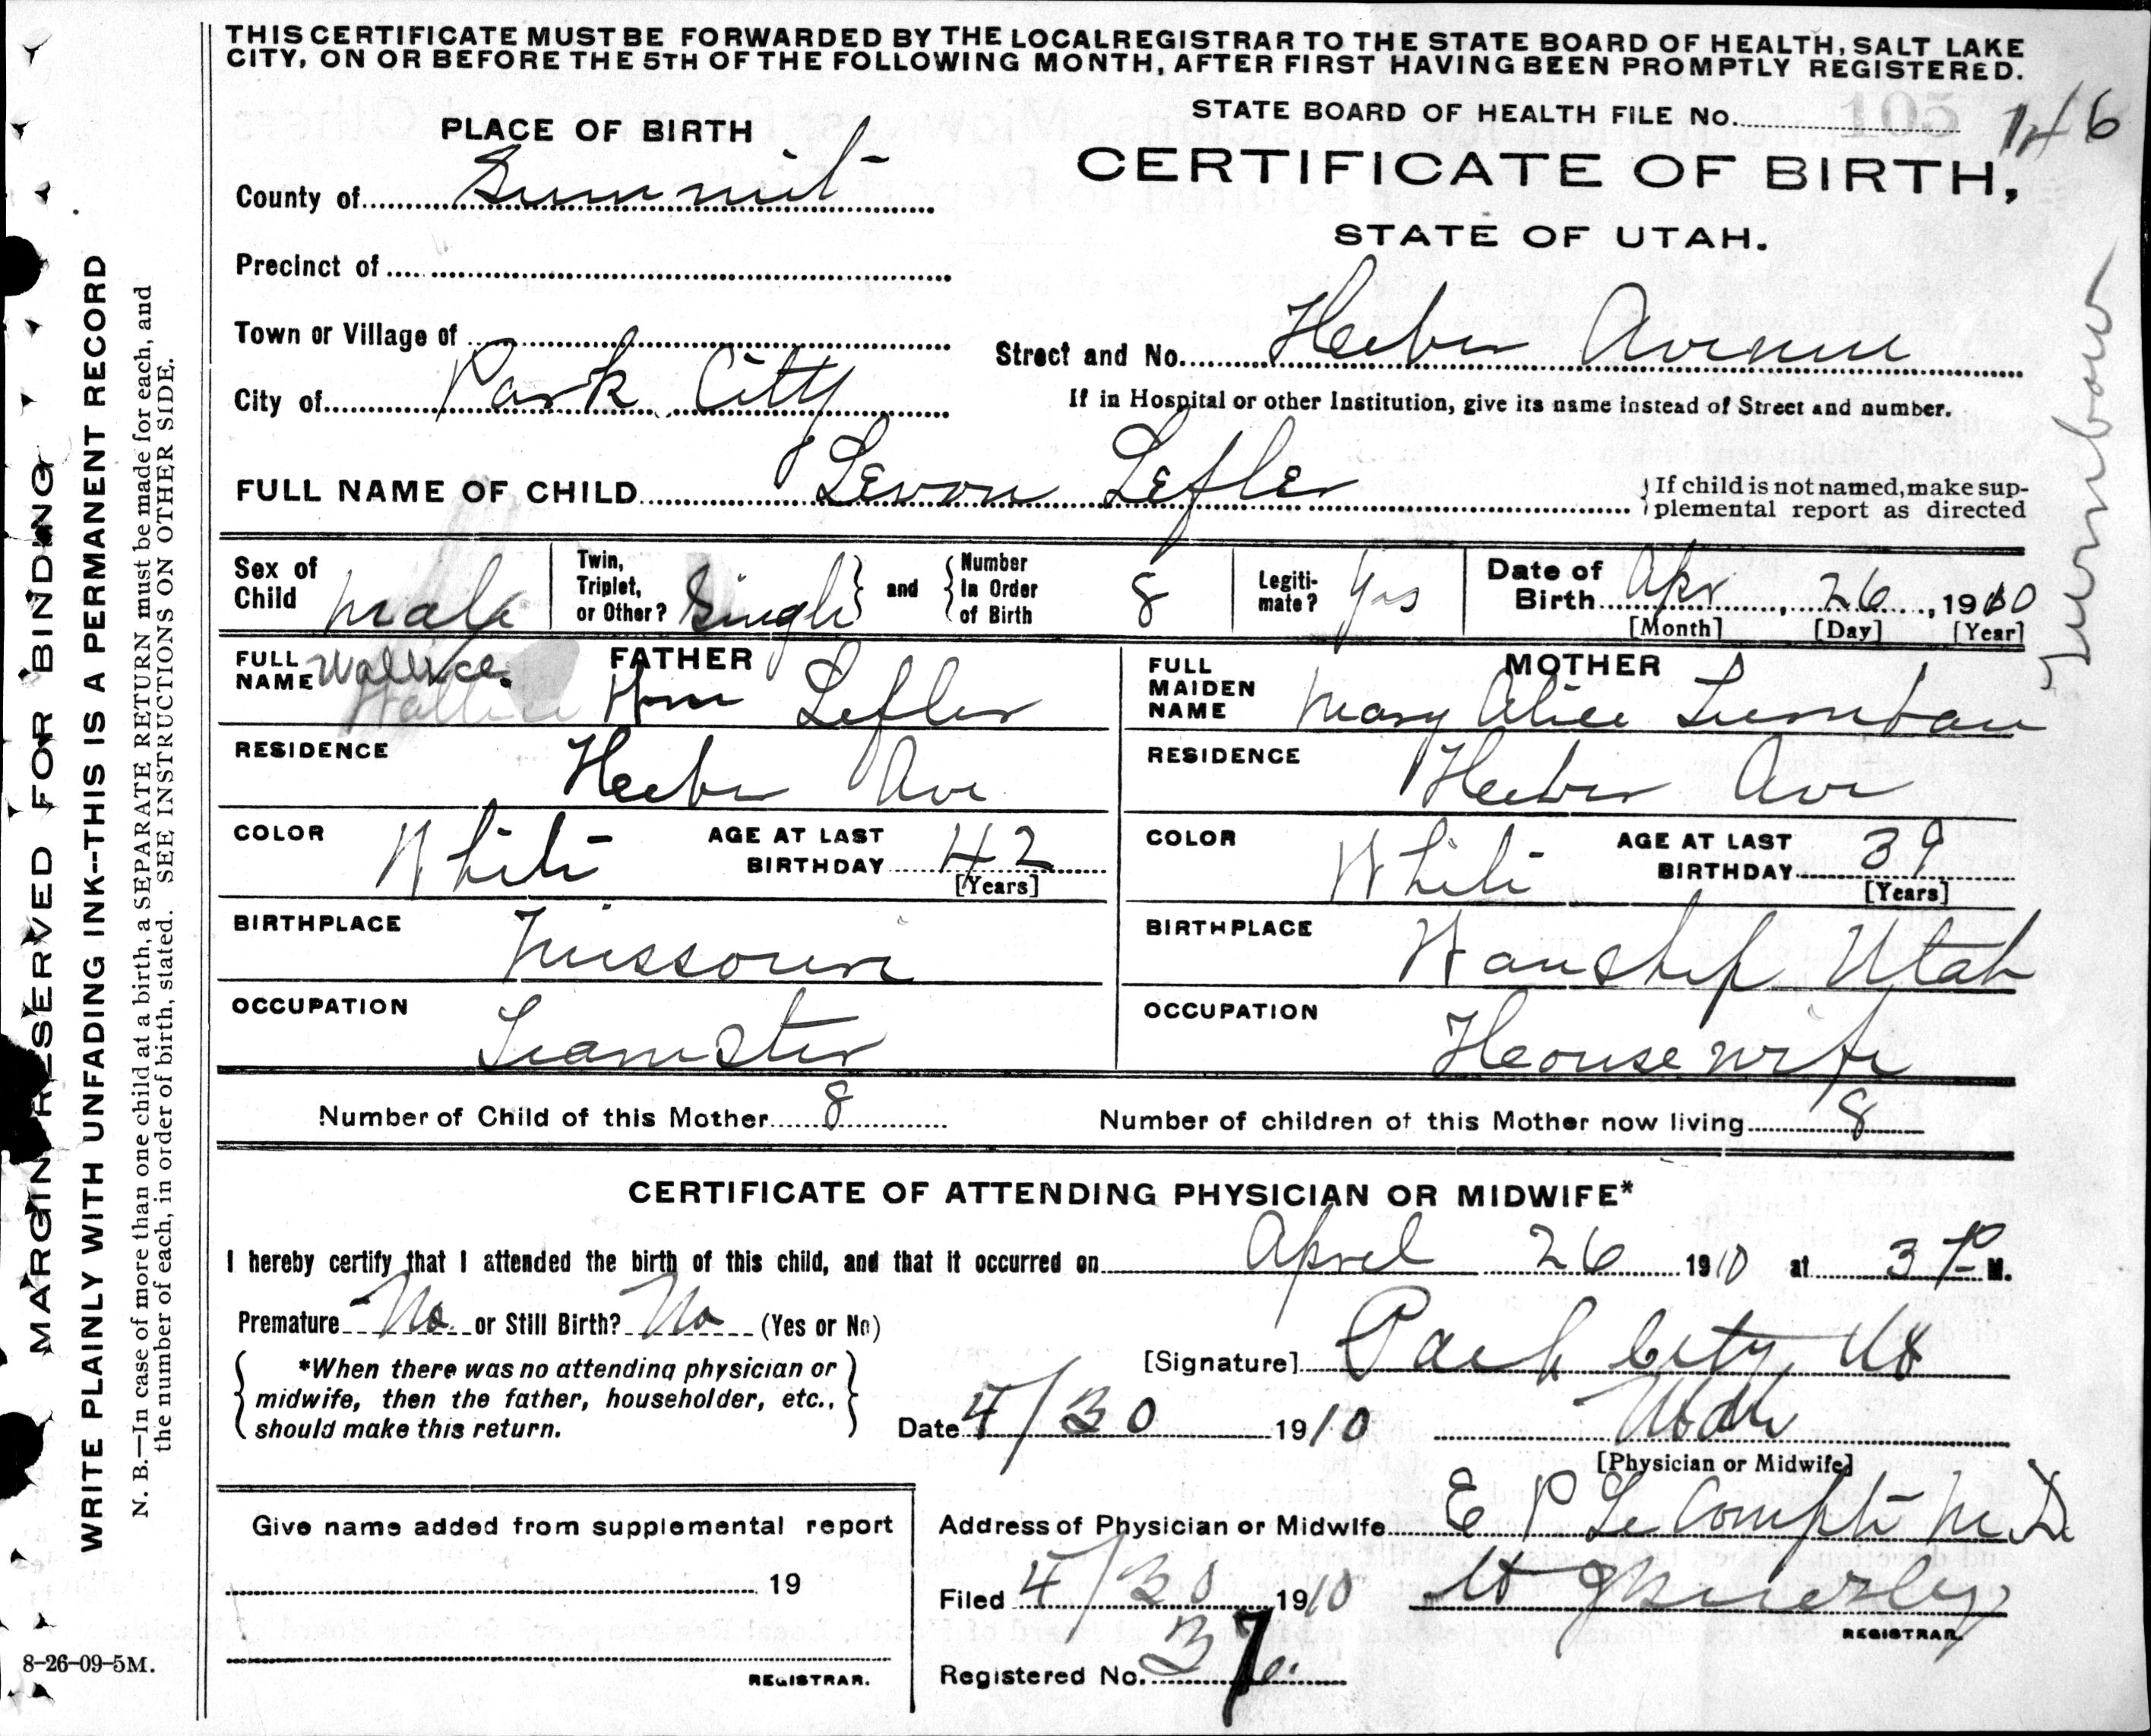 THIS CERTIFICATE MUST BE FORWARDED BY THE LOCAL REGISTRAR TO THE STATE BOARD OF HEALTH, SALT LAKE
CITY, ON OR BEFORE THE 5TH OF THE FOLLOWING MONTH, AFTER FIRST HAVING BEEN PROMPTLY REGISTERED.
STATE BOARD OF HEALTH FILE No. 105 146
PLACE OF BIRTH
CERTIFICATE OF BIRTH,
STATE OF UTAH.
County of Summit
Precinct of
Town or Village of
City of Park City
Street and No. Heber Avenue
If in Hospital or other Institution, give its name instead of Street and number.
FULL NAME OF CHILD Levon Lefler
If child is not named, make sup-
plemental report as directed
Sex of Child male
Twin, Triplet, or Other? Single and Number in Order of Birth 8
Legiti-mate? Yes
Date of Birth Apr, 26, 1910
[Month] [Day] [Year]
FATHER
FULL NAME Wallace Wm Lefler
RESIDENCE Heber Ave
COLOR White AGE AT LAST BIRTHDAY 42
[Years]
BIRTHPLACE Missouri
OCCUPATION Teamster
MOTHER
FULL MAIDEN NAME Mary Alice Turnbau
Turnbow
RESIDENCE Heber Ave
COLOR White AGE AT LAST BIRTHDAY 39
[Years]
BIRTHPLACE Wanship Utah
OCCUPATION Housewife
Number of Child of this Mother 8
Number of children of this Mother now living 8
CERTIFICATE OF ATTENDING PHYSICIAN OR MIDWIFE*
I hereby certify that I attended the birth of this child, and that it occurred on April 26 1910 at 3 P M.
Premature No or Still Birth? No (Yes or No)
*When there was no attending physician or
midwife, then the father, householder, etc.,
should make this return.
[Signature] Park City Ut
Date 4/30 1910
[Physician or Midwife]
Address of Physician or Midwife E P Le Compte M.D.
Give name added from supplemental report
19
REGISTRAR.
Filed 4/30 1910
REGISTRAR.
Registered No. 37
8-26-09-5M.
MARGIN RESERVED FOR BINDING
WRITE PLAINLY WITH UNFADING INK--THIS IS A PERMANENT RECORD
N. B.—In case of more than one child at a birth, a SEPARATE RETURN must be made for each, and
the number of each, in order of birth, stated. SEE INSTRUCTIONS ON OTHER SIDE.